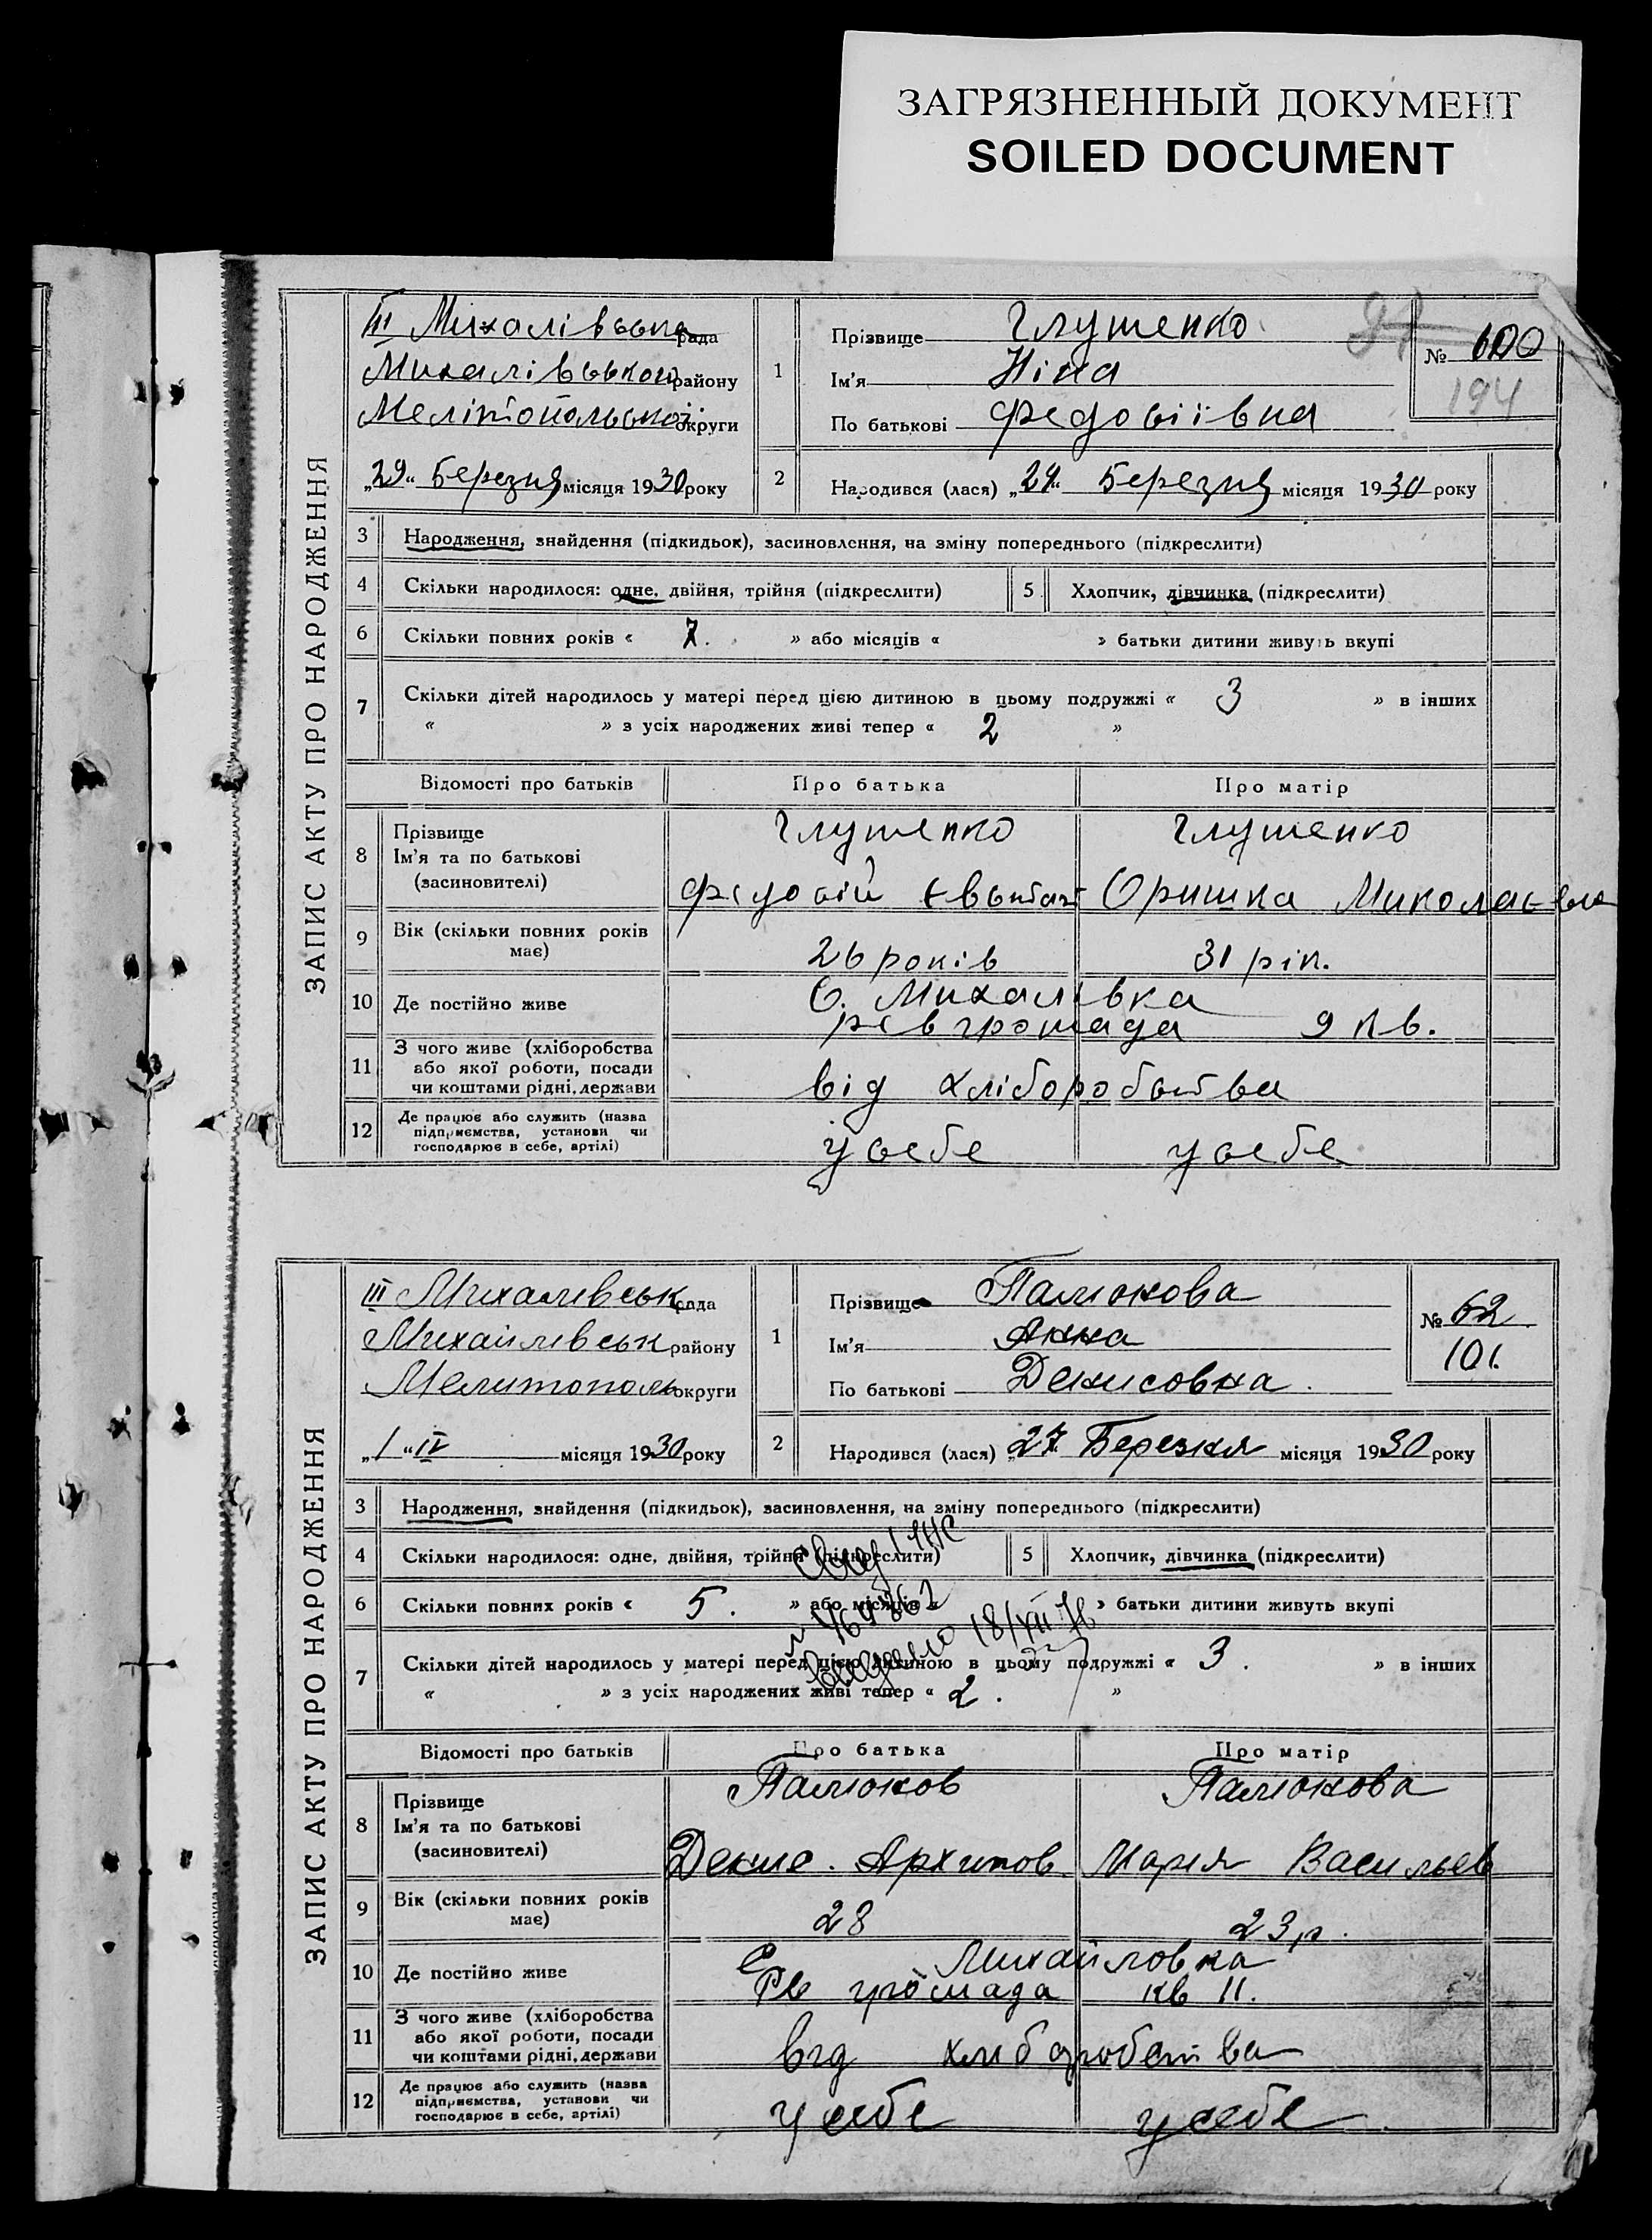 ЗАГРЯЗНЕННЫЙ ДОКУМЕНТ
SOILED DOCUMENT
ЗАПИС АКТУ ПРО НАРОДЖЕННЯ
III Михалівська рада
Михалівського району
Мелітопольської округи
„29“ Березня місяця 1930 року
1
Прізвище Глушенко
Ім'я Ніна
По батькові Федосіївна
№ 600
194
2
Народився (лася) „24“ Березня місяця 1930 року
3 Народження, знайдення (підкидьок), засиновлення, на зміну попереднього (підкреслити)
4 Скільки народилося: одне, двійня, трійня (підкреслити) 5 Хлопчик, дівчинка (підкреслити)
6 Скільки повних років « 7. » або місяців « » батьки дитини живуть вкупі
7 Скільки дітей народилось у матері перед цією дитиною в цьому подружжі « 3 » в інших
« » з усіх народжених живі тепер « 2 »
Відомості про батьків Про батька Про матір
8 Прізвище Глушенко Глушенко
Ім'я та по батькові
(засиновителі) Федосій Євстах Оришка Миколаєвна
9 Вік (скільки повних років має) 26 років 31 рік.
10 Де постійно живе С. Михалівка
рев громада 9 кв.
11 З чого живе (хліборобства
або якої роботи, посади
чи коштами рідні, держави від хліборобства
12 Де працює або служить (назва
підприємства, установи чи
господарює в себе, артілі) у себе у себе
ЗАПИС АКТУ ПРО НАРОДЖЕННЯ
III Михалівськ рада
Михайлівськ району
Мелитополь округи
„1“ IV місяця 1930 року
1
Прізвище Палюкова
Ім'я Анна
По батькові Денисовна.
№ 62
101.
2
Народився (лася) „27. Березня місяця 1930 року
3 Народження, знайдення (підкидьок), засиновлення, на зміну попереднього (підкреслити)
4 Скільки народилося: одне, двійня, трійня (підкреслити) 5 Хлопчик, дівчинка (підкреслити)
6 Скільки повних років « 5. » або місяців « » батьки дитини живуть вкупі
7 Скільки дітей народилось у матері перед цією дитиною в цьому подружжі « 3. » в інших
« » з усіх народжених живі тепер « 2. »
Видано 18/XII 76
Відомості про батьків Про батька Про матір
8 Прізвище Палюков Палюкова
Ім'я та по батькові
(засиновителі) Денис. Архипов Мария Васильев
9 Вік (скільки повних років має) 28 23 р.
10 Де постійно живе с Михайловка
Рев громада кв 11.
11 З чого живе (хліборобства
або якої роботи, посади
чи коштами рідні, держави від хліборобства
12 Де працює або служить (назва
підприємства, установи чи
господарює в себе, артілі) у себе у себе